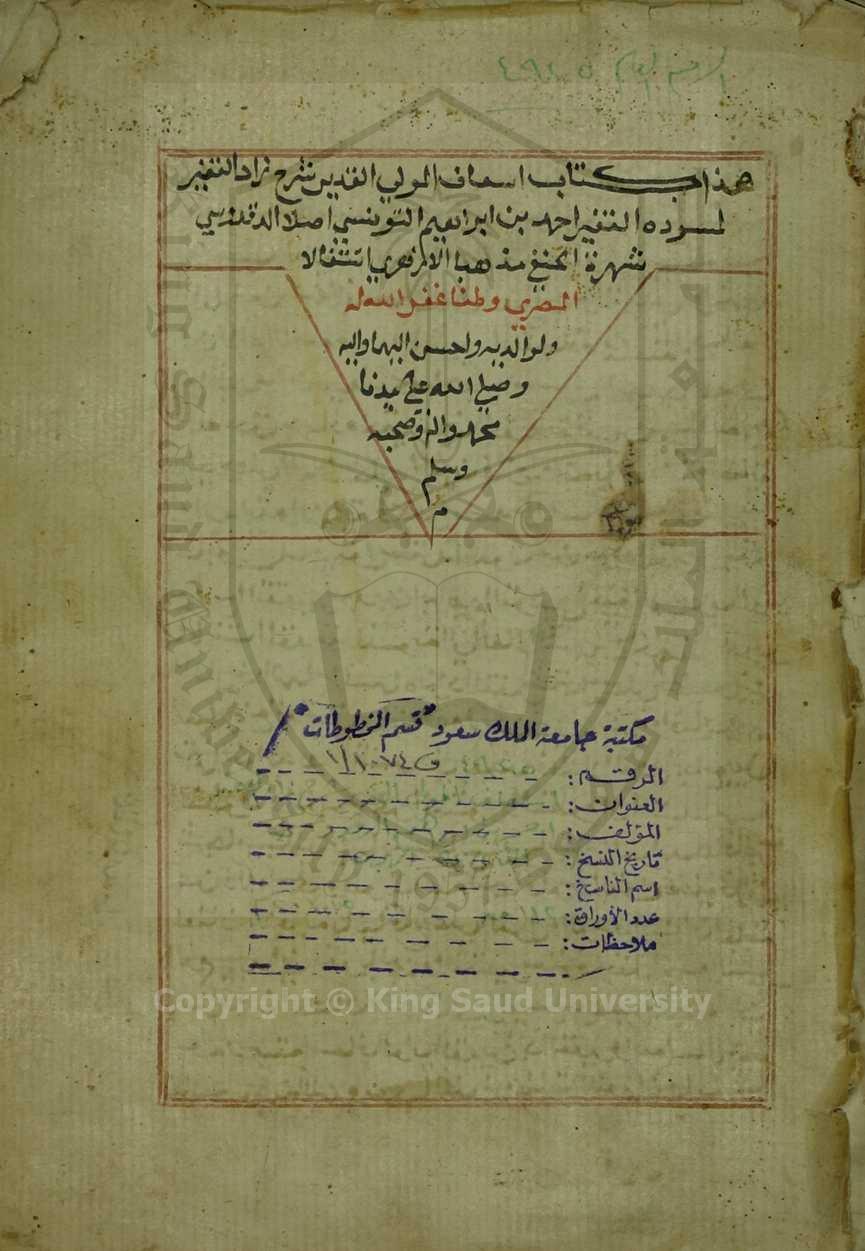 الرقم العام ٤٩٨٥
هذا كتاب اسعاف المولي القدير شرح زاد الفقير
لمسوده الفقير احمد بن ابراهيم التونسي اصلا الدقدوسي
شهرة الحنفي مذهبا الازهري اشتغالا
المصري وطنا غفر الله له
ولوالديه واحسن اليهما واليه
وصلي الله علي سيدنا
محمد واله وصحبه
وسلم
م
مكتبة جامعة الملك سعود "قسم المخطوطات"
الرقم: ف ١٠٧٤/١
العنوان:
المؤلف:
تاريخ النسخ:
اسم الناسخ:
عدد الأوراق:
ملاحظات:
Copyright © King Saud University